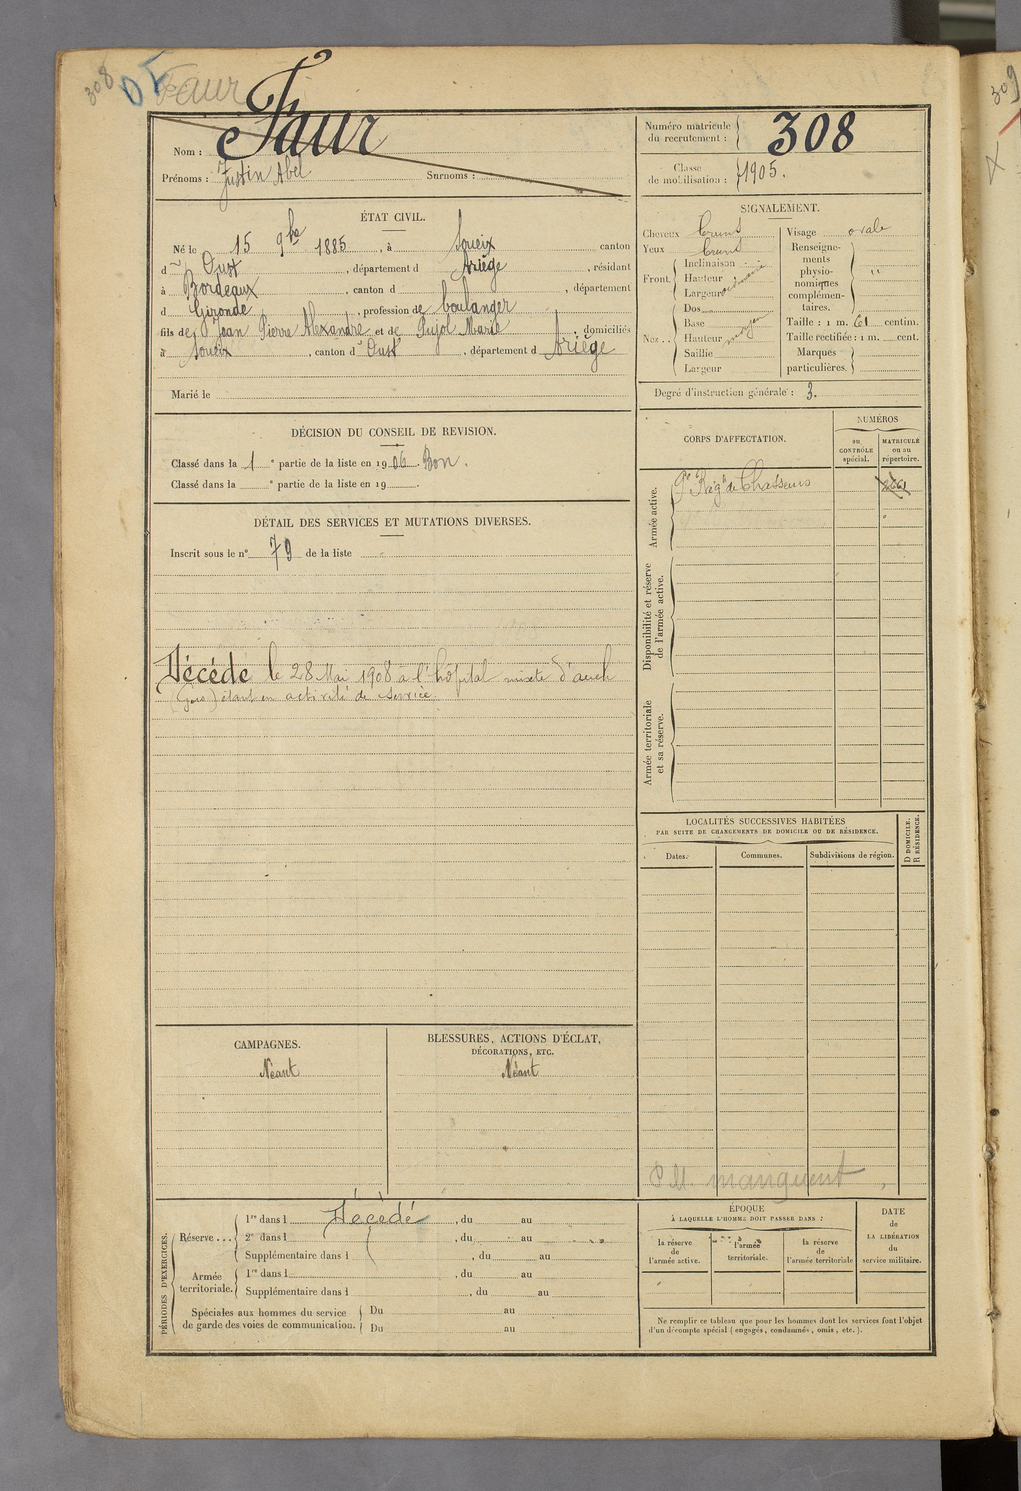 308
Faur
309
Nom : Faur
Prénoms : Justin Abel Surnoms :
Numéro matricule
du recrutement : 308
Classe
de mobilisation : 1905.
ÉTAT CIVIL.
Né le 15 9bre 1885, à Soueix canton
d Oust, département d Ariège, résidant
à Bordeaux, canton d , département
d Gironde, profession de boulanger
fils de Jean Pierre Alexandre et de Pujol Marie, domiciliés
à Soueix, canton d' Oust, département d Ariège
Marié le
SIGNALEMENT.
Cheveux bruns
Yeux bruns
Front. Inclinaison
Hauteur
Largeur ordinaire
Nez.. Dos
Base
Hauteur moyen
Saillie
Largeur
Visage ovale
Renseigne-
ments
physio-
nomiques
complémen-
taires. "
Taille : 1 m. 61 centim.
Taille rectifiée : 1 m. cent.
Marques
particulières.
Degré d'instruction générale : 3.
DÉCISION DU CONSEIL DE REVISION.
Classé dans la 1 e partie de la liste en 1906. Bon.
Classé dans la e partie de la liste en 19 .
DÉTAIL DES SERVICES ET MUTATIONS DIVERSES.
Inscrit sous le n° 79 de la liste
Décédé le 28 Mai 1908 à l'hôpital mixte d'auch
(Gers) étant en activité de service.
CORPS D'AFFECTATION.
NUMÉROS
au
CONTRÔLE
spécial.
MATRICULE
ou au
répertoire.
Armée active.
9e Régt de Chasseurs
Disponibilité et réserve
de l'armée active.
Armée territoriale
et sa réserve.
LOCALITÉS SUCCESSIVES HABITÉES
PAR SUITE DE CHANGEMENTS DE DOMICILE OU DE RÉSIDENCE.
Dates.
Communes.
Subdivisions de région.
D DOMICILE.
R RÉSIDENCE.
CAMPAGNES.
Néant
BLESSURES, ACTIONS D'ÉCLAT,
DÉCORATIONS, ETC.
Néant
manquent
PÉRIODES D'EXERCICES.
Réserve ...
1re dans l Décédé , du au
2e dans l , du au
Supplémentaire dans l , du au
Armée
territoriale.
1re dans l , du au
Supplémentaire dans l , du au
Spéciales aux hommes du service
de garde des voies de communication.
Du au
Du au
ÉPOQUE
À LAQUELLE L'HOMME DOIT PASSER DANS :
la réserve
de
l'armée active.
l'armée
territoriale.
la réserve
de
l'armée territoriale
DATE
de
LA LIBÉRATION
du
service militaire.
Ne remplir ce tableau que pour les hommes dont les services font l'objet
d'un décompte spécial (engagés, condamnés, omis, etc.).